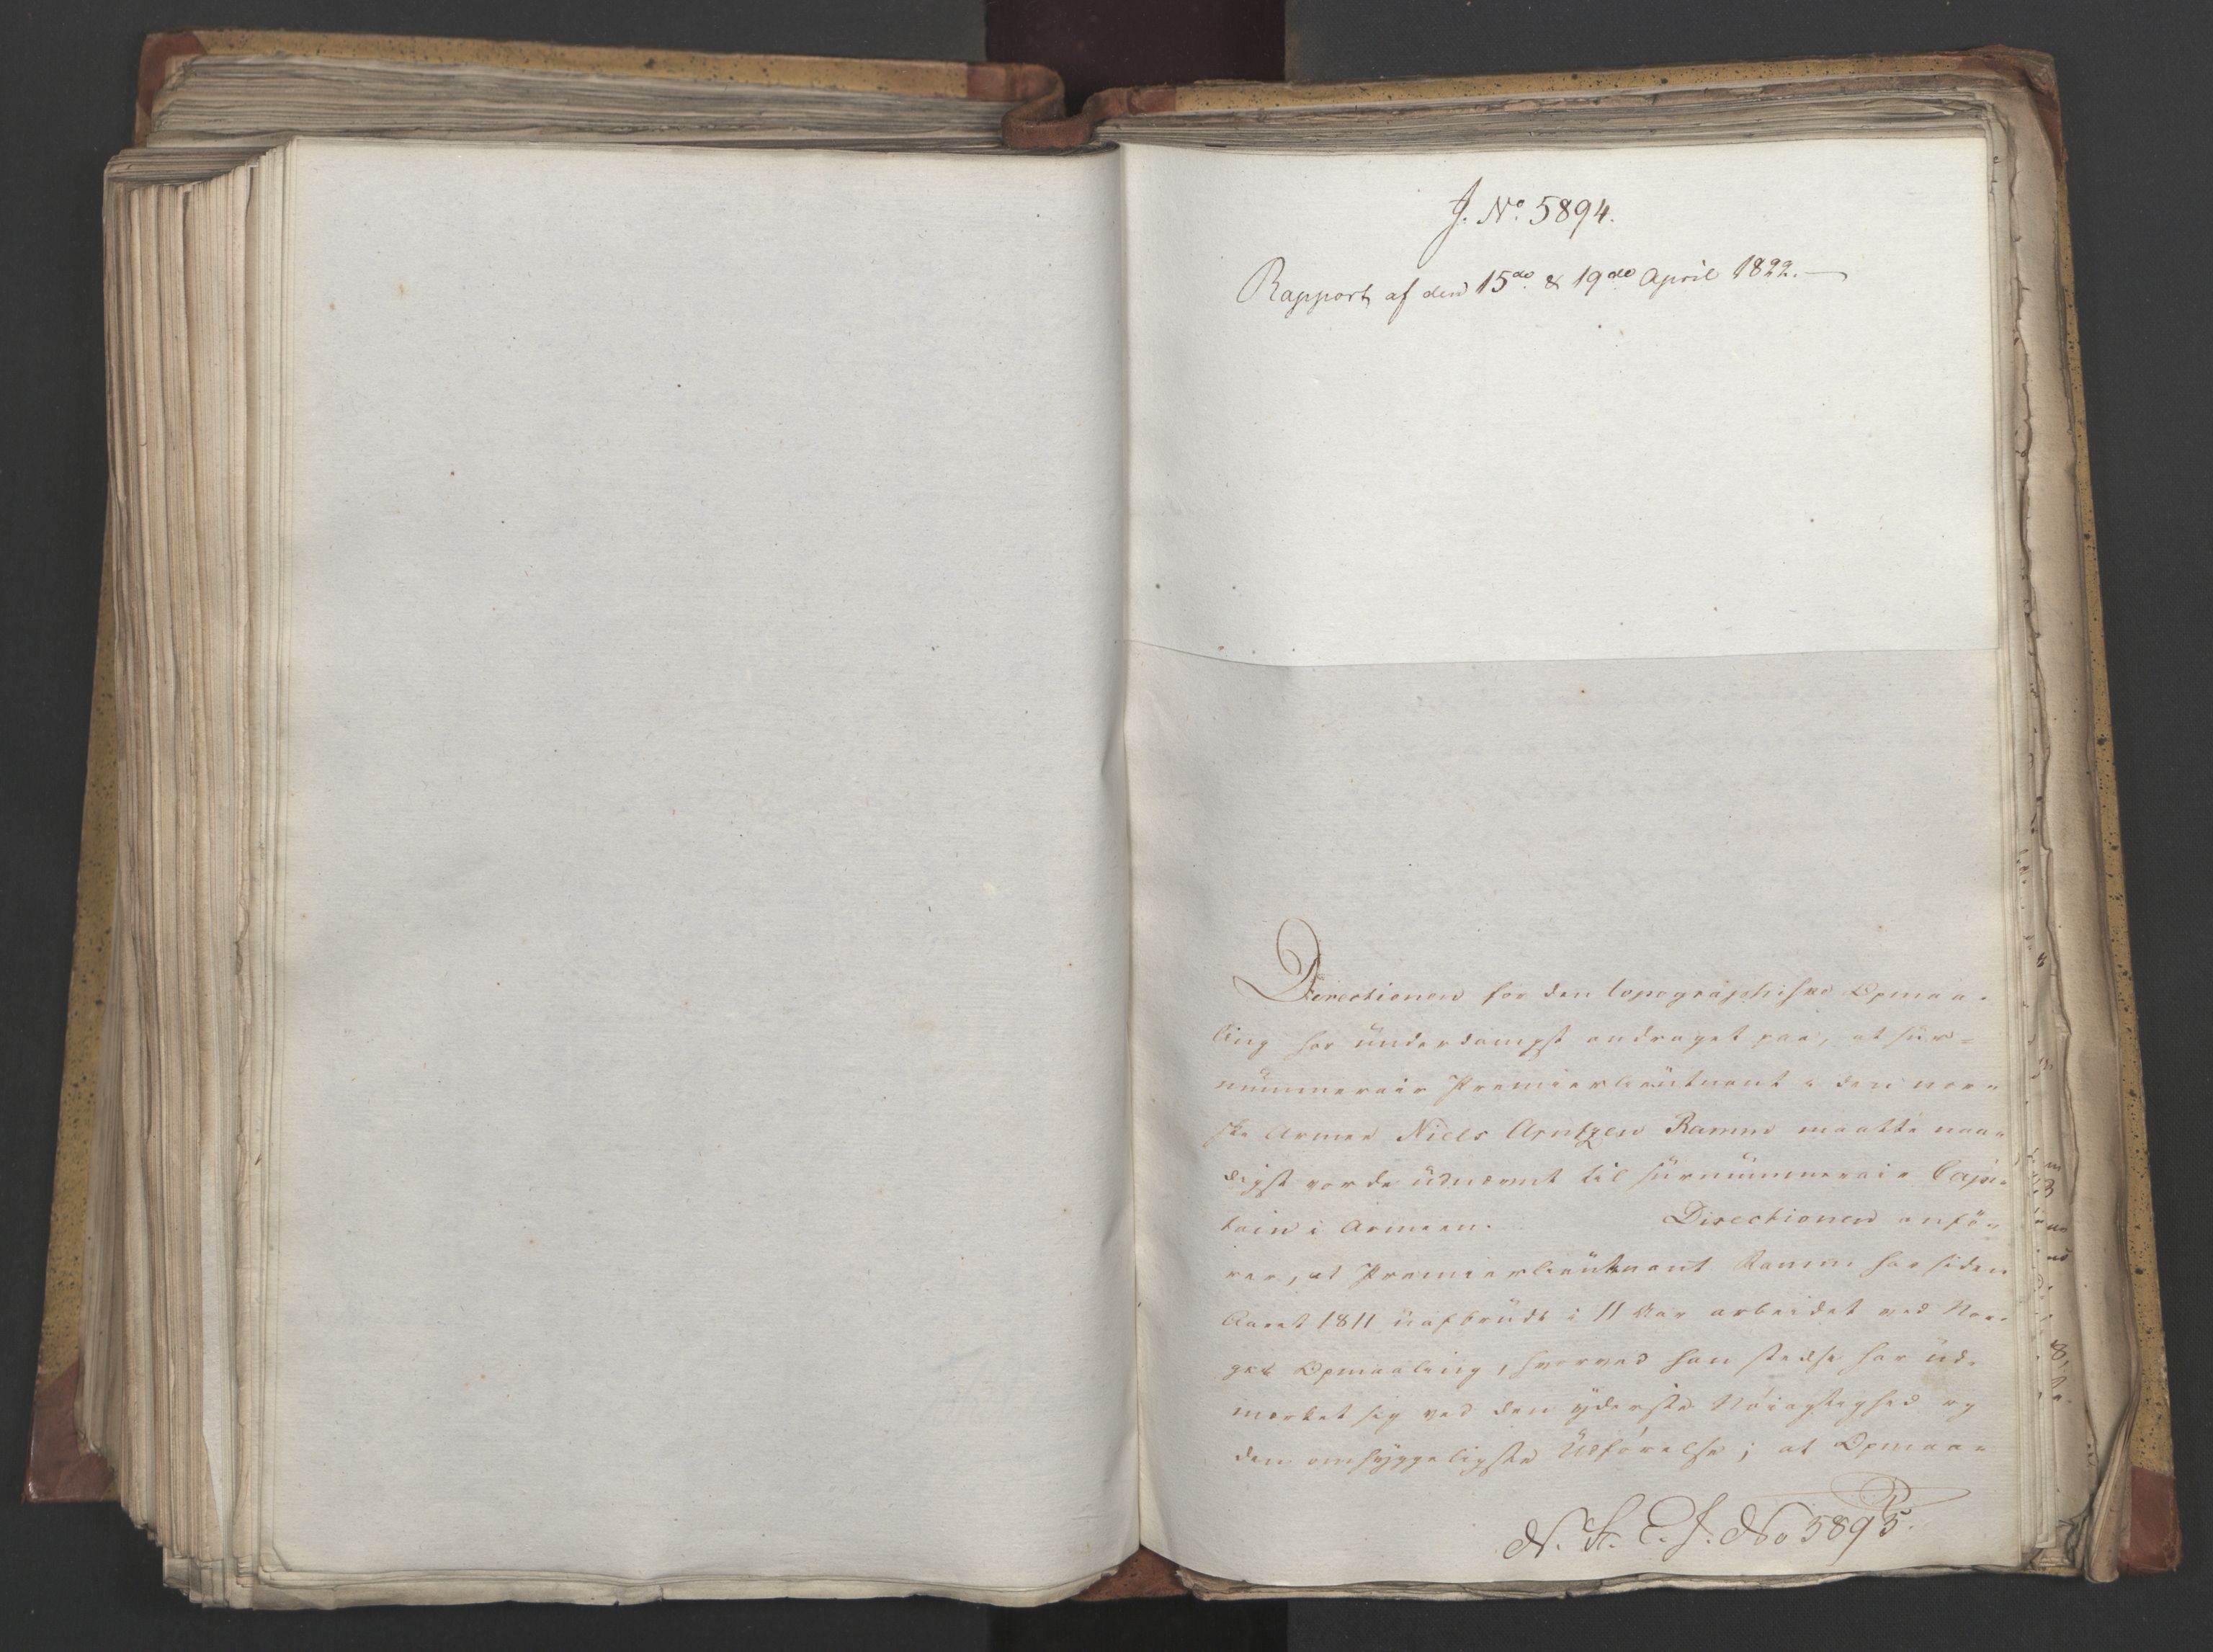 J. No. 5894.
Rapport af den 15de & 19de April 1822.—
Directionen for den topographiske Opmaa-
ling har underdanigst andraget paa, at sur-
nummerair Premierlieutnant i den nor-
ske Armee Niels Arntzen Ramm maatte naa-
digst vorde udnævnt til surnummerair Cap-
tain i Armeen. Directionen anfö-
rer, at Premierlieutnant Ramm har siden
Aaret 1811 uafbrudt i 11 Aar arbeidet ved Nor-
ges Opmaaling, hvorved han stedse har ud-
mærket sig ved den yderste Nöiagtighed og
den omhyggeligste Udförelse; at Opmaa-
N. S. E. J. No 5895.